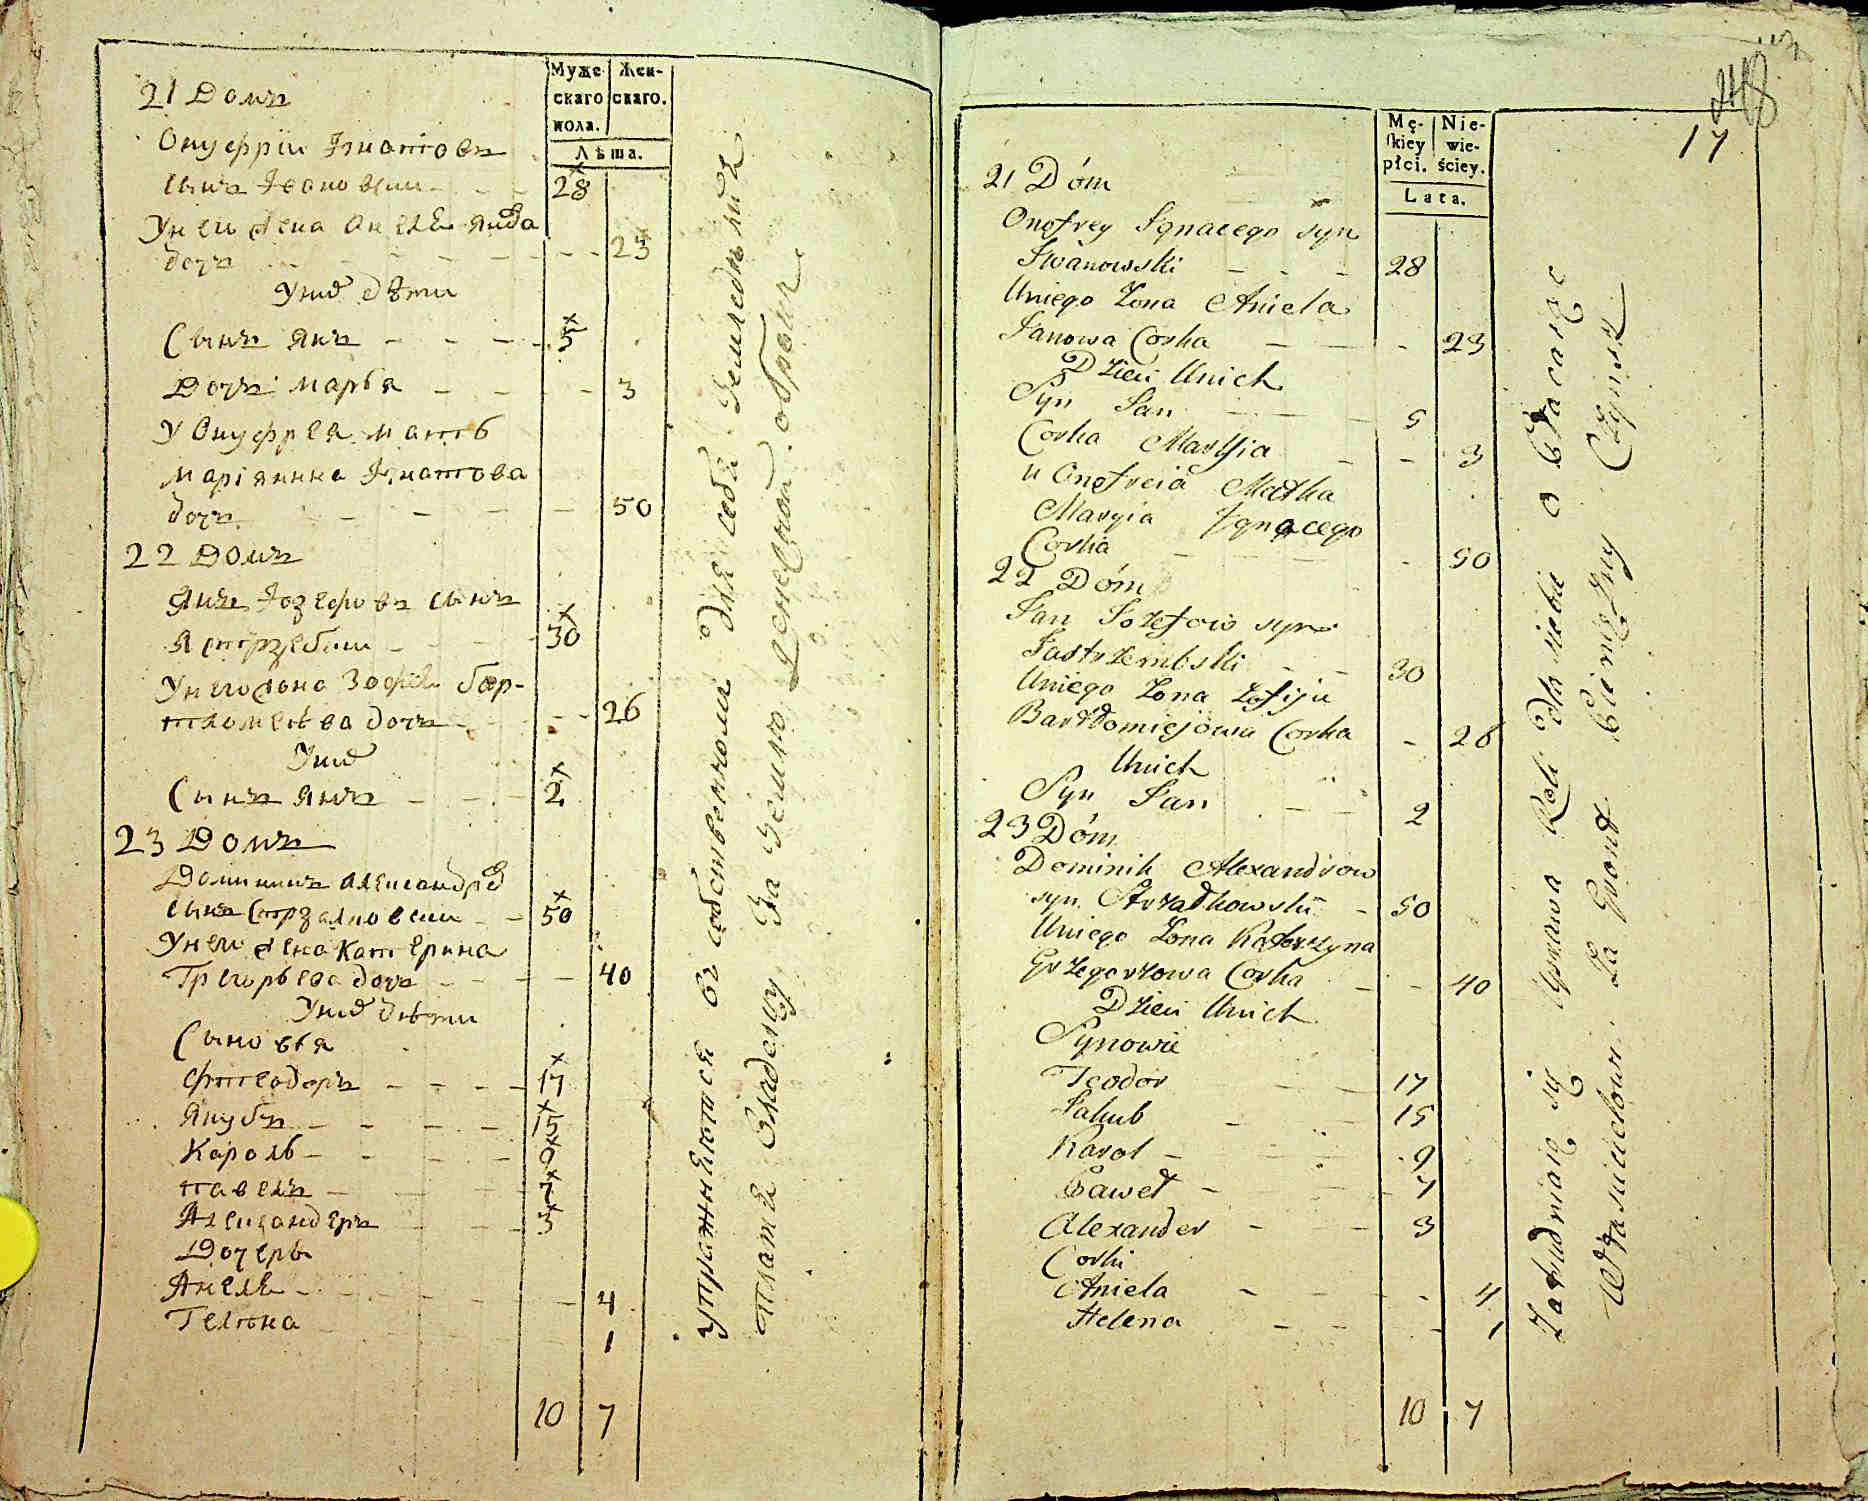 Муже
скаго
пола.
Жен-
скаго.
Лѣта.
21 Домъ
Онуфрій Игнатовъ
сынъ Ивановскій - - - 28
У него жена Анеля Янова
дочь - - - - - - - 23
У нихъ дѣти
Сынъ Янъ - - - - 5
Дочь Марья - - - - 3
У Онуфрея мать
Маріянна Игнатова
дочь - - - - - 50
22 Домъ
Янъ Іозефовъ сынъ
Ястрзебскій - - - - 30
У него жена Зофія Бар-
тломеева дочь - - - - 26
У нихъ
Сынъ Янъ - - - - 2
23 Домъ
Доминикъ Александров
сынъ Стрзалковскій - - 50
У него жена Катерина
Грегорьева дочь - - - - 40
У нихъ дѣти
Сыновья
Ѳтеодоръ - - - - 17
Якубъ - - - - 15
Кароль - - - - 9
Павелъ - - - - 7
Александеръ - - - 3
Дочери
Анеля - - - - - - 4
Гелѣна - - - - - 1
10 7
упражняются въ собственноми для себя земледѣліи
платя Владельцу за землю денежной оброкъ
248
17
Mę-
skiey
płci.
Nie-
wie-
ściey.
Lata.
21 Dóm
Onofrey Ignacego syn
Iwanowski - - - 28
Uniego Zona Aniela
Janowa Corka - - - 23
Dzieci Unich
Syn Jan - - - 5
Corka Maryja - - 3
u Onofreia Matka
Maryia Ignacego
Corka - - - - 50
22 Dóm
Jan Jozefow syn
Jastrzembski - - 30
Uniego Zona Zofija
Bartłomiejowa Corka - 26
Unich
Syn Jan - - 2
23 Dóm
Dominik Alexandrow
syn Strzałkowski - 50
Uniego Zona Katarzyna
Grzegorzowa Corka - - 40
Dzieci Unich
Synowie
Teodor - - 17
Jakub - - - 15
Karol - - - - 9
Paweł - - - - 7
Alexander - - - 3
Corki
Aniela - - - - 4
Helena - - - 1
10 7
Zatrudniaią się Uprawą Roli dla siebie opłacaiąc
Właścicielowi Za Gront Pieniężny Czynsz